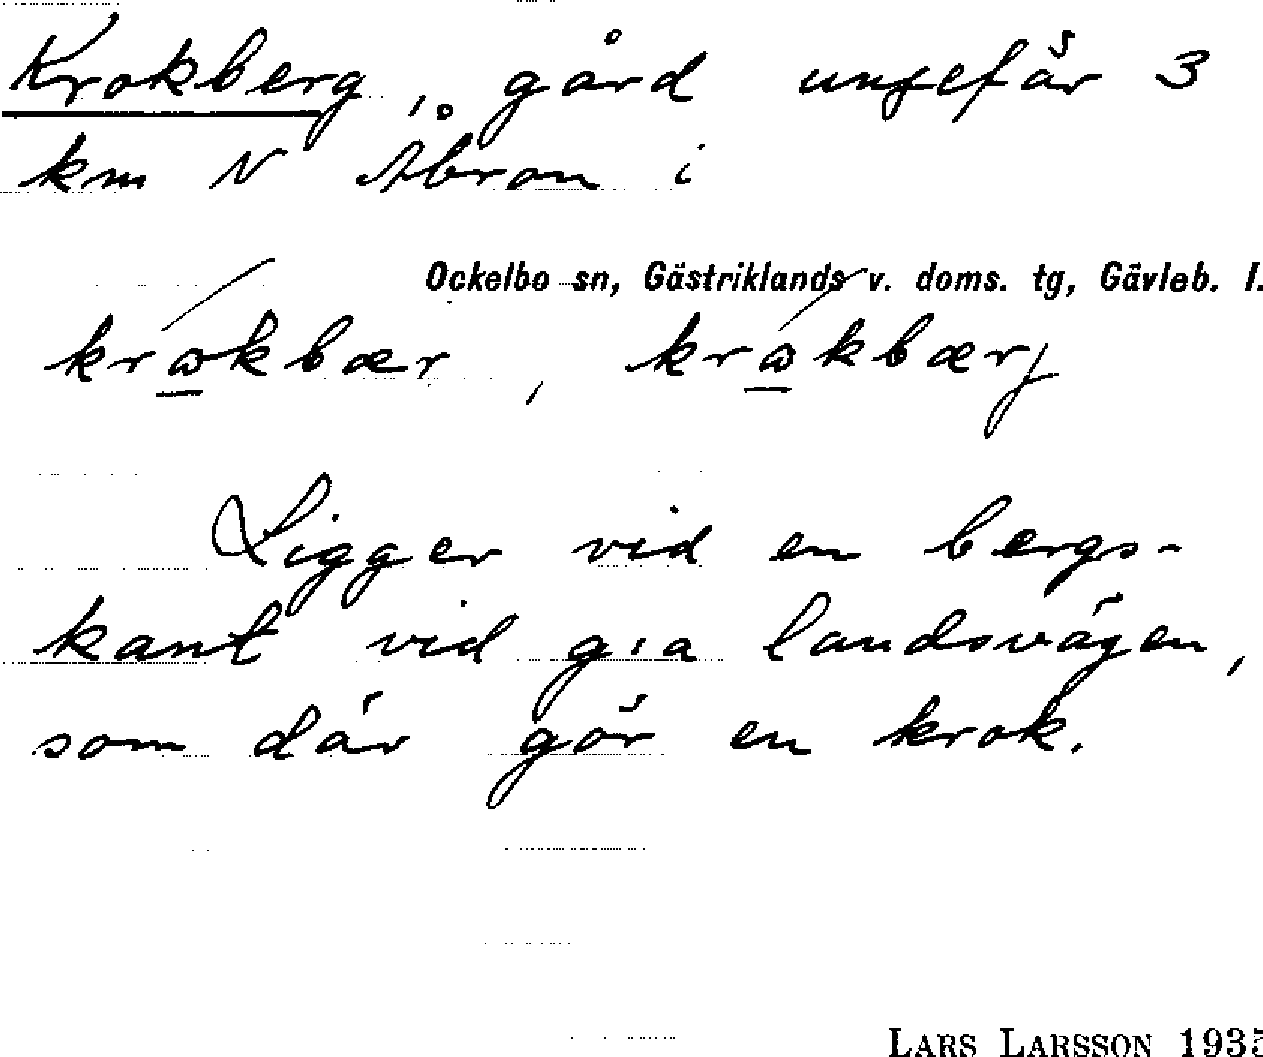 Krokberg, gård ungefär 3
km N Åbron i
Ockelbo sn, Gästriklands v. doms. tg, Gävleb. l.
krωkbær, krωkbærj
Ligger vid en bergs-
kant vid g:a landsvägen,
som där gör en krok.
LARS LARSSON 1935